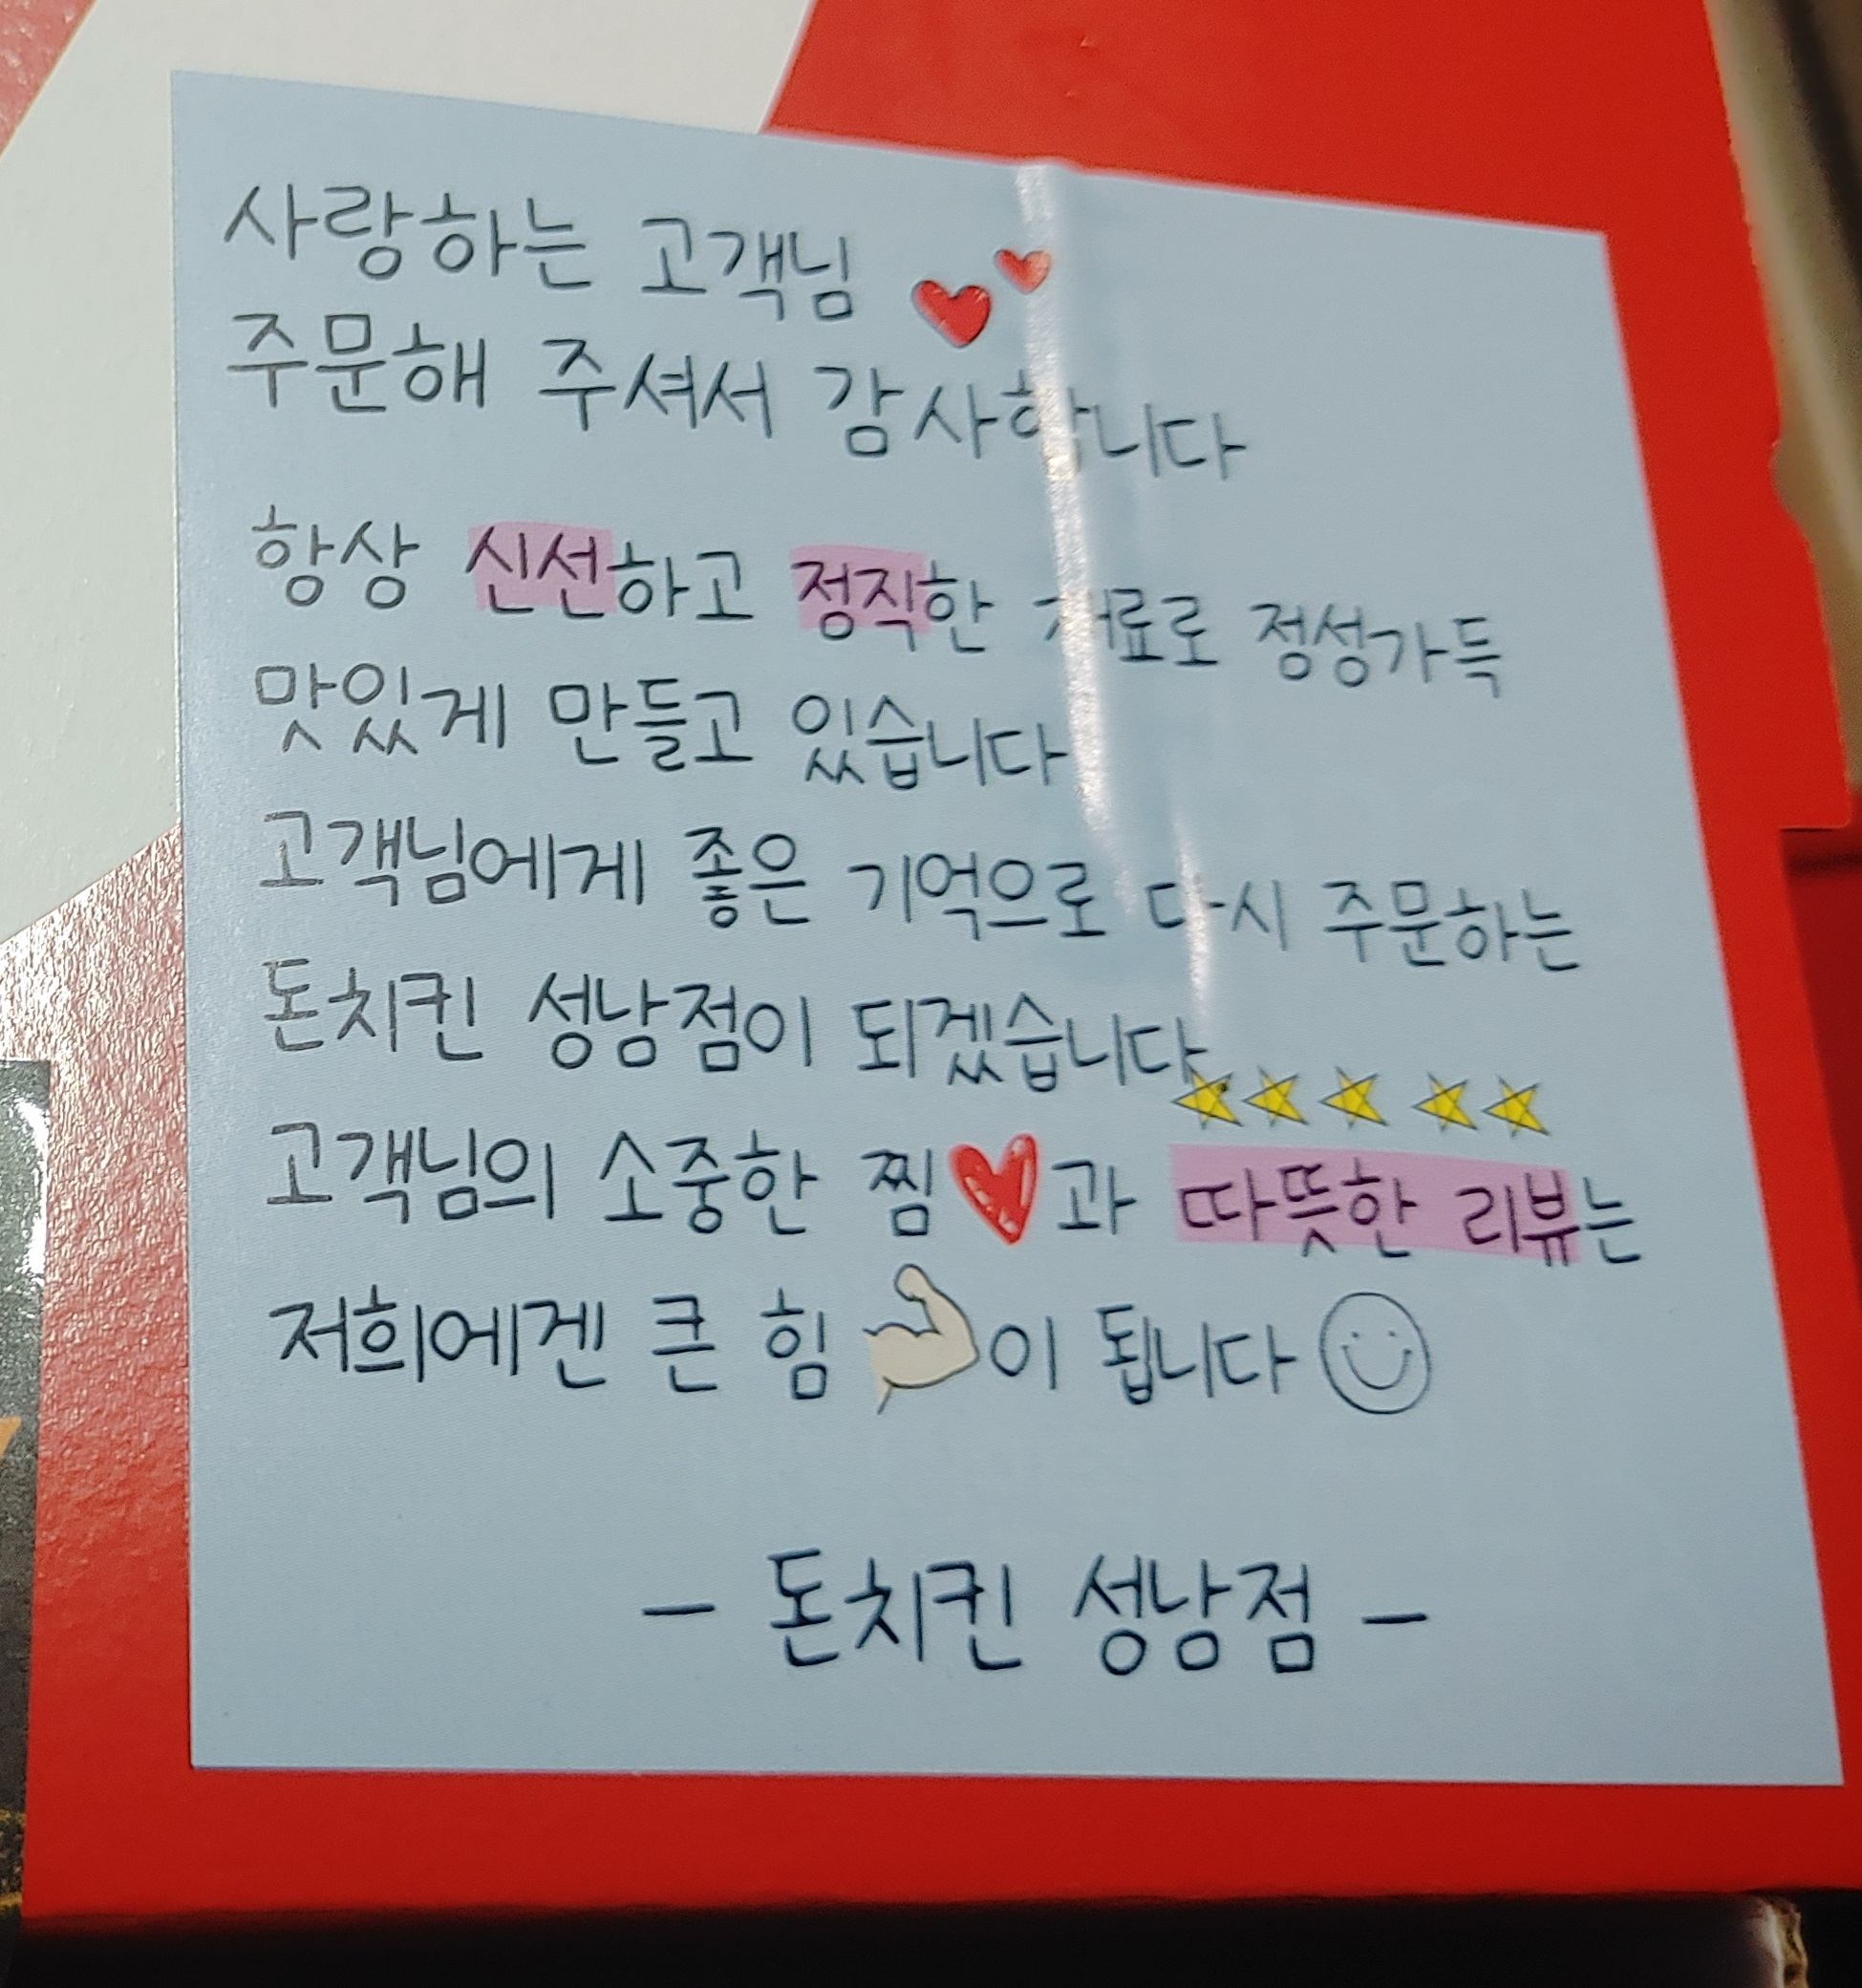 사랑하는 고객님
주문해 주셔서 감사합니다
항상 신선하고 정직한 재료로 정성가득
맛있게 만들고 있습니다
고객님에게 좋은 기억으로 다시 주문하는
돈치킨 성남점이 되겠습니다
고객님의 소중한 찜❤과 따뜻한 리뷰는
저희에겐 큰 힘💪이 됩니다☺
- 돈치킨 성남점 -